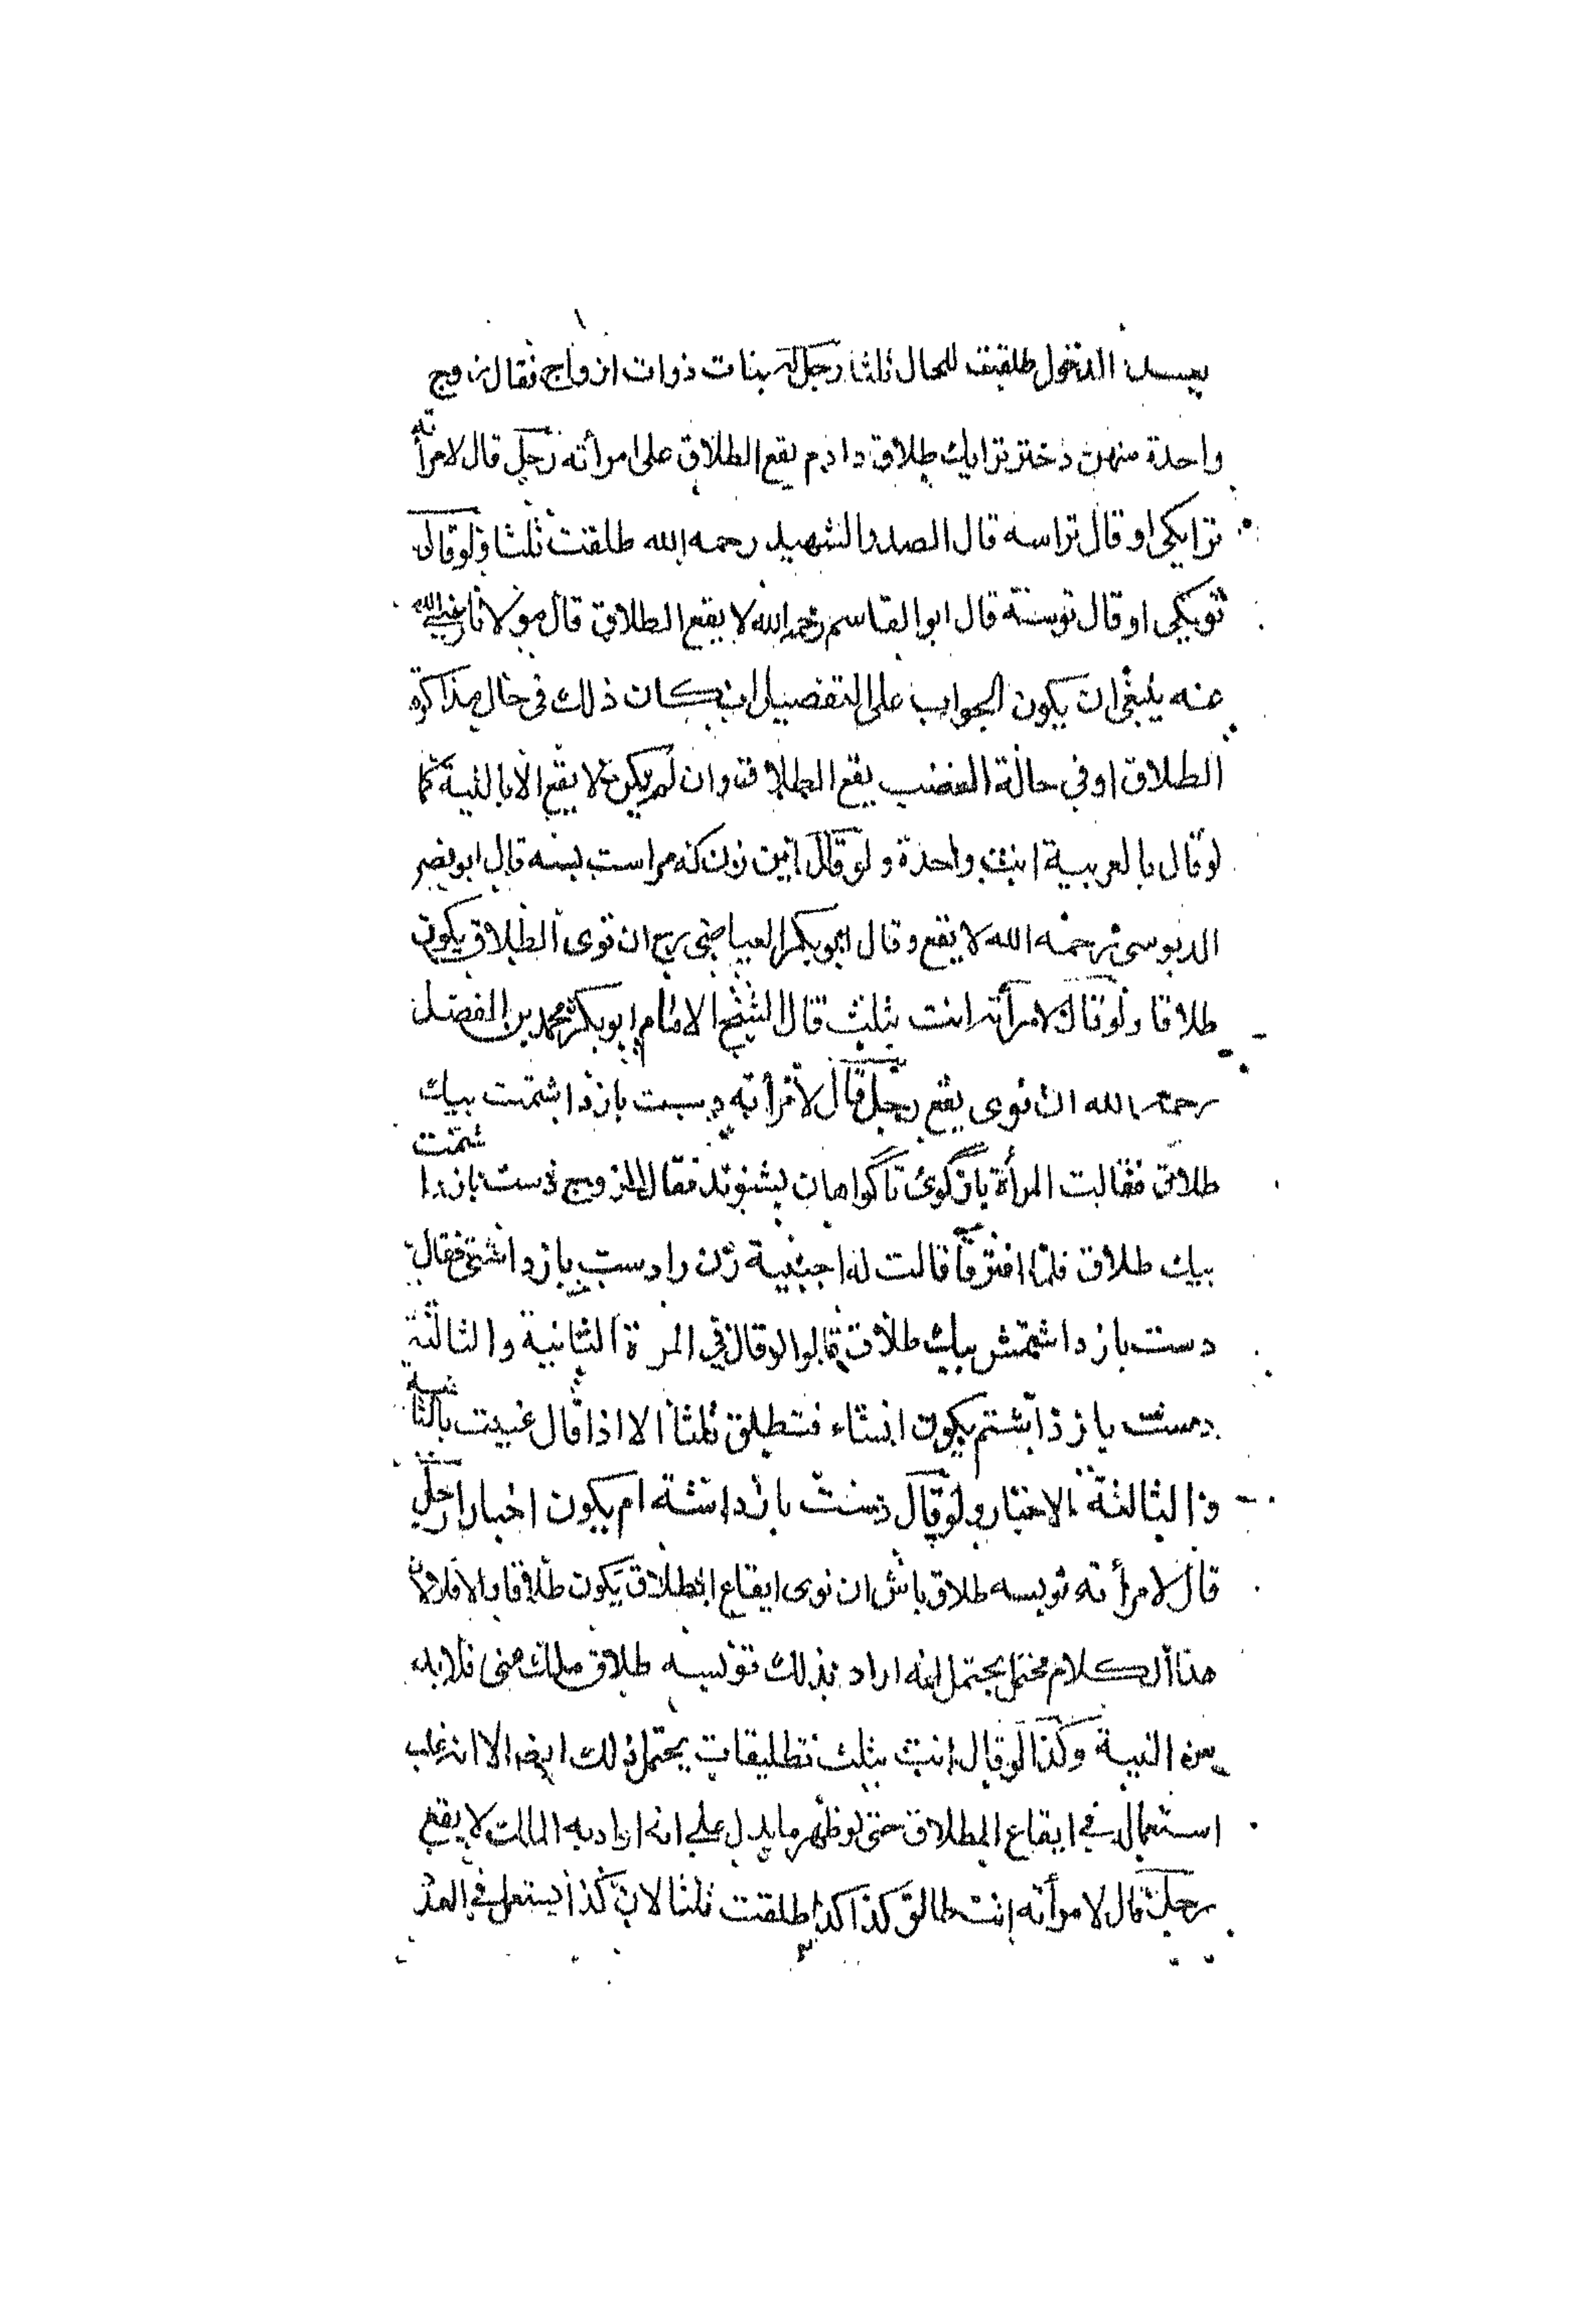 بعد الدخول طلقت للحال ثلثا رجل له بنات ذوات ازواج فقال زوج
واحدة منهن دختر ترا يك طلاق دادم يقع الطلاق على امرأته رجل قال لامرأته
ترا يكى او قال ترا سه قال الصدر الشهيد رحمه الله طلقت ثلثا ولو قال
تو يكى او قال تو سه قال ابو القاسم رحمه الله لا يقع الطلاق قال مولانا رضى الله
عنه ينبغى ان يكون الجواب على التفصيل ان كان ذلك فى حال مذاكرة
الطلاق او فى حالة الغضب يقع الطلاق وان لم يكن لا يقع الا بالنية كما
لو قال بالعربية انت واحدة ولو قال اين زن كه مراست بسه قال ابو نصر
الدبوسى رحمه الله لا يقع وقال ابو بكر العياضى رح ان نوى الطلاق يكون
طلاقا ولو قال لامرأته انت بثلث قال الشيخ الامام ابو بكر محمد بن الفضل
رحمه الله ان نوى يقع رجل قال لامرأته دست باز داشتمت بيك
طلاق فقالت المرأة باز گوئ تا گواهان بشنوند فقال الزوج دست باز داشتمت
بيك طلاق فلما افترقا قالت له اجنبية زن را دست باز داشتى فقال
دست باز داشتمش بيك طلاق قالوا لو قال فى المرة الثانية والثالثة
دست باز داشتم يكون انشاء فتطلق ثلثا الا اذا قال عنيت بالثانية
والثالثة الاخبار ولو قال دست باز داشته ام يكون اخبارا رجل
قال لامرأته تو بسه طلاق باش ان نوى ايقاع الطلاق يكون طلاقا والا فلا لان
هذا الكلام محتمل يحتمل انه اراد بذلك تو بسه طلاق ملك منى فلا بد
من النية وكذا لو قال انت بثلث تطليقات يحتمل ذلك ايضا الا انه غلب
استعماله فى ايقاع الطلاق حتى لو ظهر ما يدل على انه اراد به الملك لا يقع
رجل قال لامرأته انت طالق كذا كذا طلقت ثلثا لان كذا يستعمل فى العدد